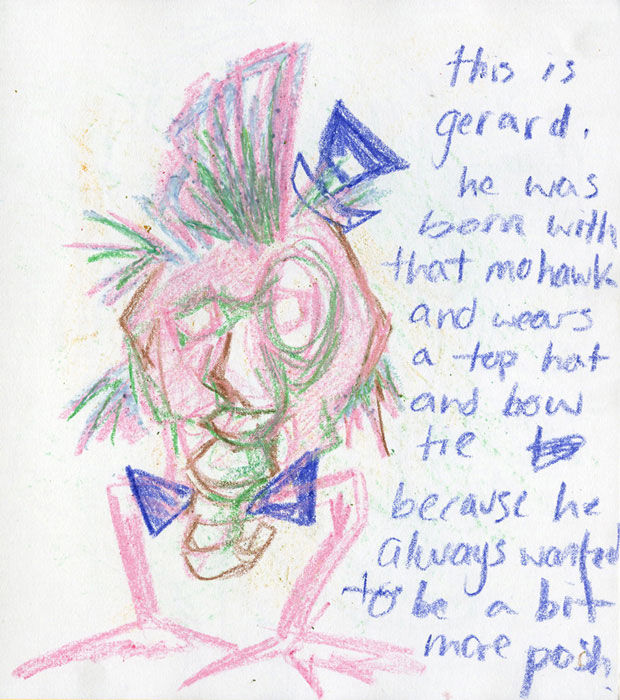 this is
gerard.
he was
born with
that mohawk
and wears
a top hat
and bow
tie
because he
always wanted
to be a bit
more posh.